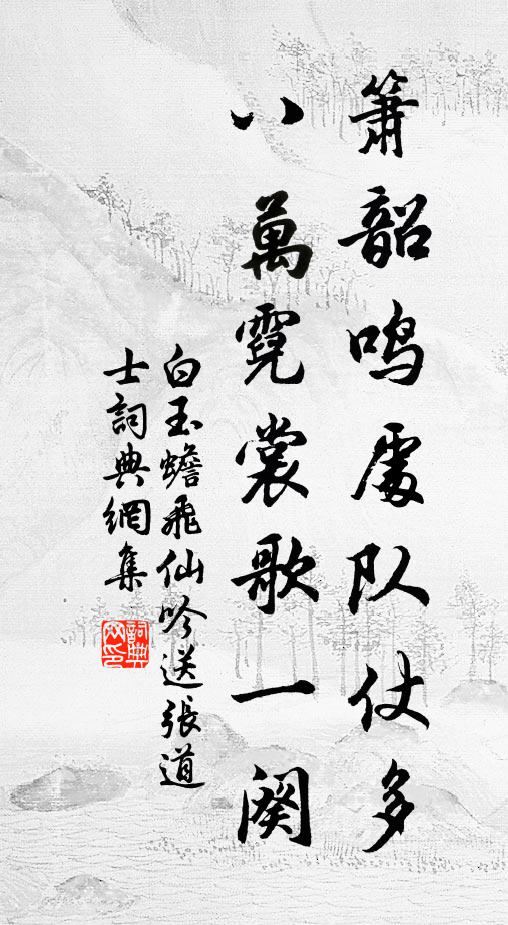 箫韶鸣处队仗多
八萬霓裳歌一阕
白玉蟾飛仙吟送張道
士詞典網集
詞典網印